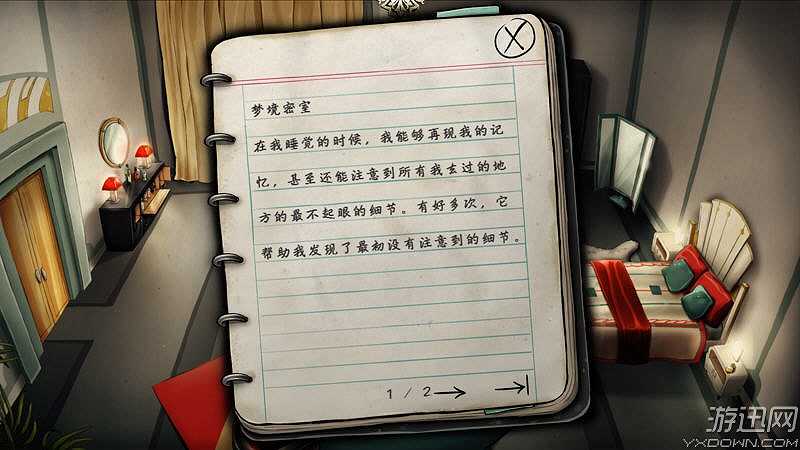 梦境密室
在我睡觉的时候，我能够再现我的记
忆，甚至还能注意到所有我去过的地
方的最不起眼的细节。有好多次，它
帮助我发现了最初没有注意到的细节。
1 / 2
游迅网
YXDOWN.COM